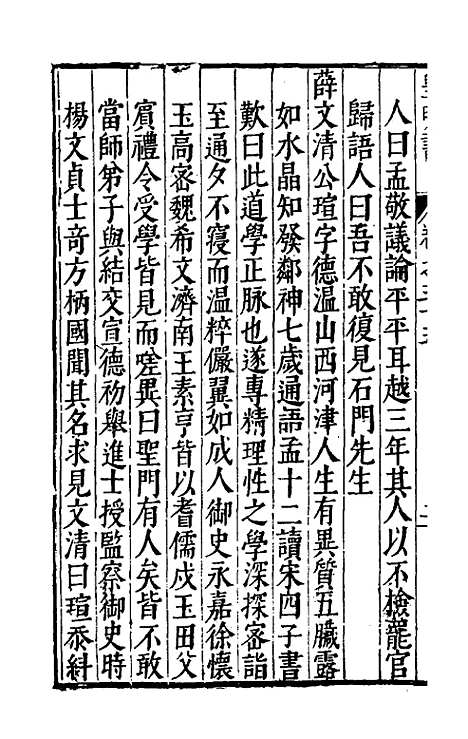 人曰孟敬議論平平耳越三年其人以不檢罷官
歸語人曰吾不敢復見石門先生
薛文清公瑄字德溫山西河津人生有異質五臟露
如水晶知發鄰神七歲通語孟十二讀宋四子書
歎曰此道學正脉也遂專精理性之學深探密詣
至通夕不寝而温粹儼翼如成人御史永嘉徐懷
玉高密魏希文濟南王素亨皆以耆儒戍玉田父
賓禮令受學皆見而嗟異曰聖門有人矣皆不敢
當師弟子與結交宣德初舉進士授監察御史時
楊文貞士奇方柄國聞其名求見文清曰瑄忝糾